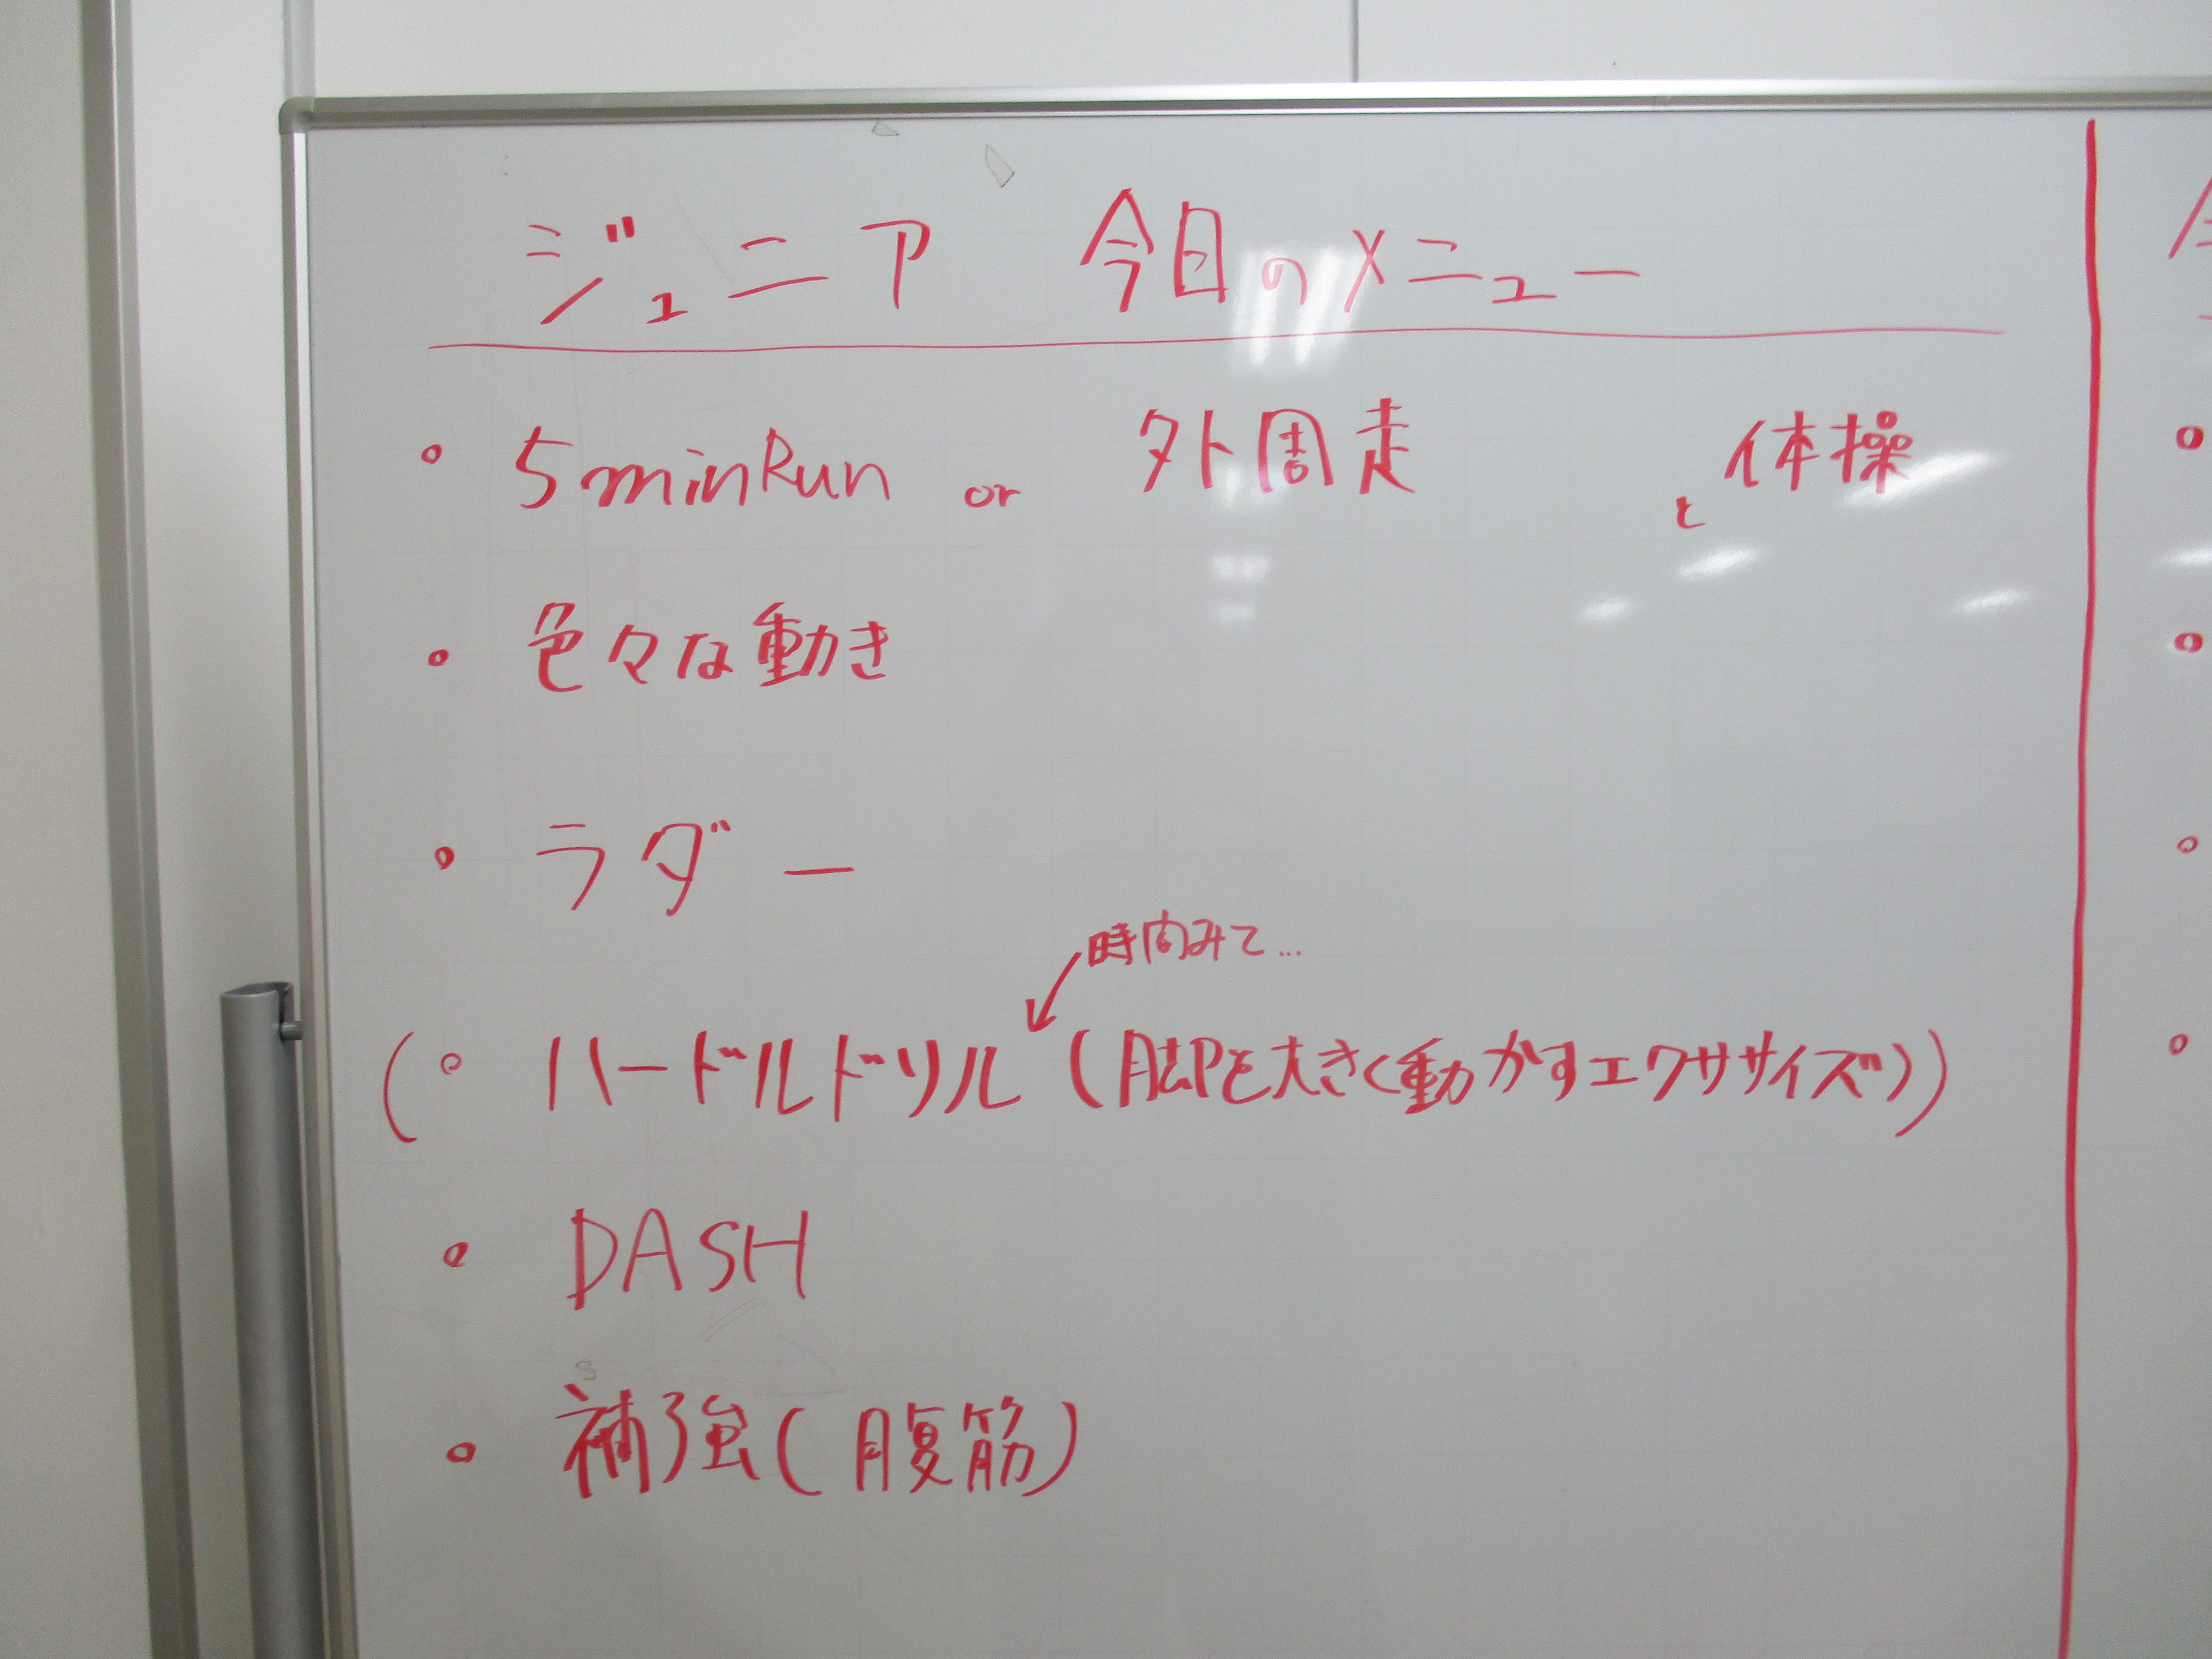 ジュニア 今日のメニュー
• 5minRun or 外周走 と体操
• 色々な動き
• ラダー
時間みて...
(• ハードルドリル (脚を大きく動かすエクササイズ))
• DASH
• 補強(腹筋)